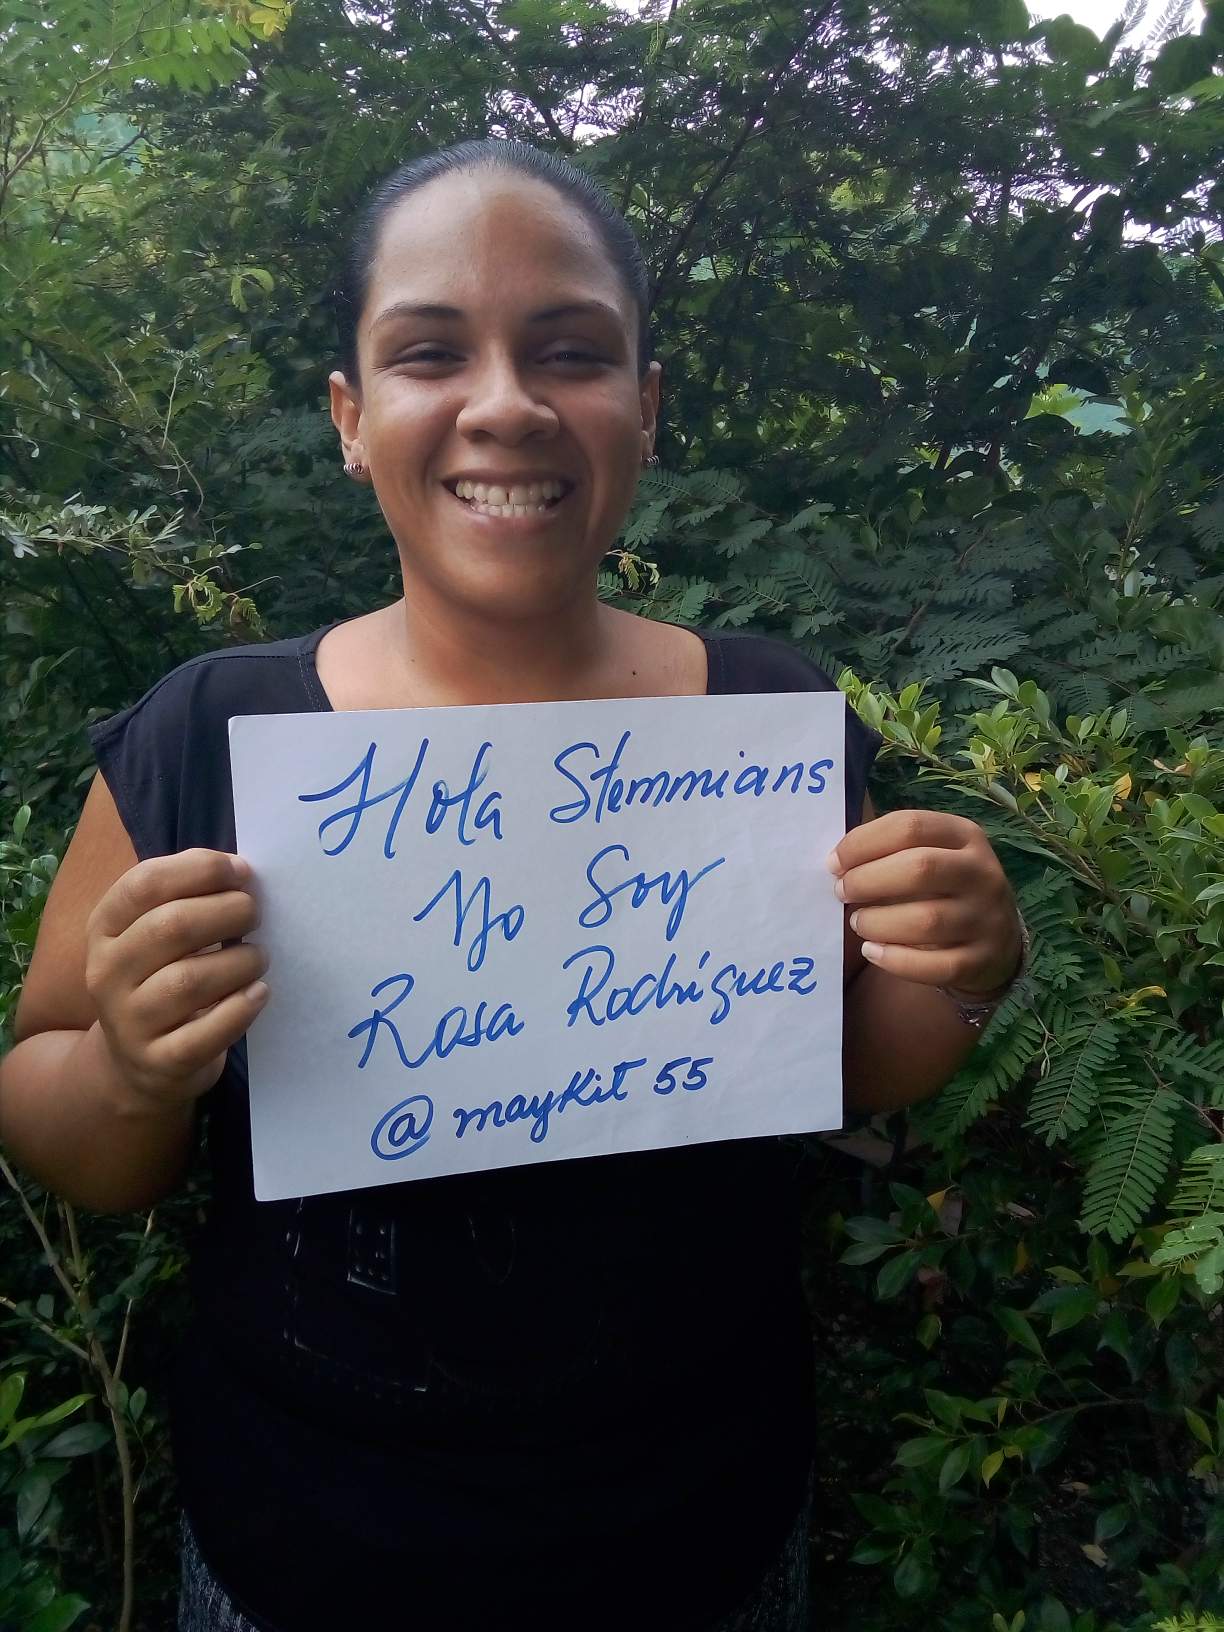 Hola Stemmians
Yo Soy
Rosa Rodríguez
@maykit55